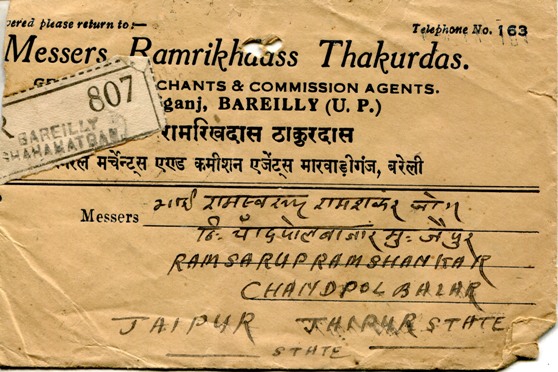 ered please return to:—
Telephone No. 163
Messers Ramrikhdass Thakurdas.
CHANTS & COMMISSION AGENTS.
ganj, BAREILLY (U. P.)
807
BAREILLY
SHAHAMATGANJ
रामरिखदास ठाकुरदास
मर्चेन्ट्स एण्ड कमीशन एजेंट्स मारवाड़ीगंज, बरेली
Messers भाई रामस्वरूप रामशंकर जोग
ठि: चाँदपोल बाजार मु: जैपुर
RAMSARUP RAMSHANKAR
CHANDPOL BAZAR
JAIPUR JAIPUR STATE
STATE